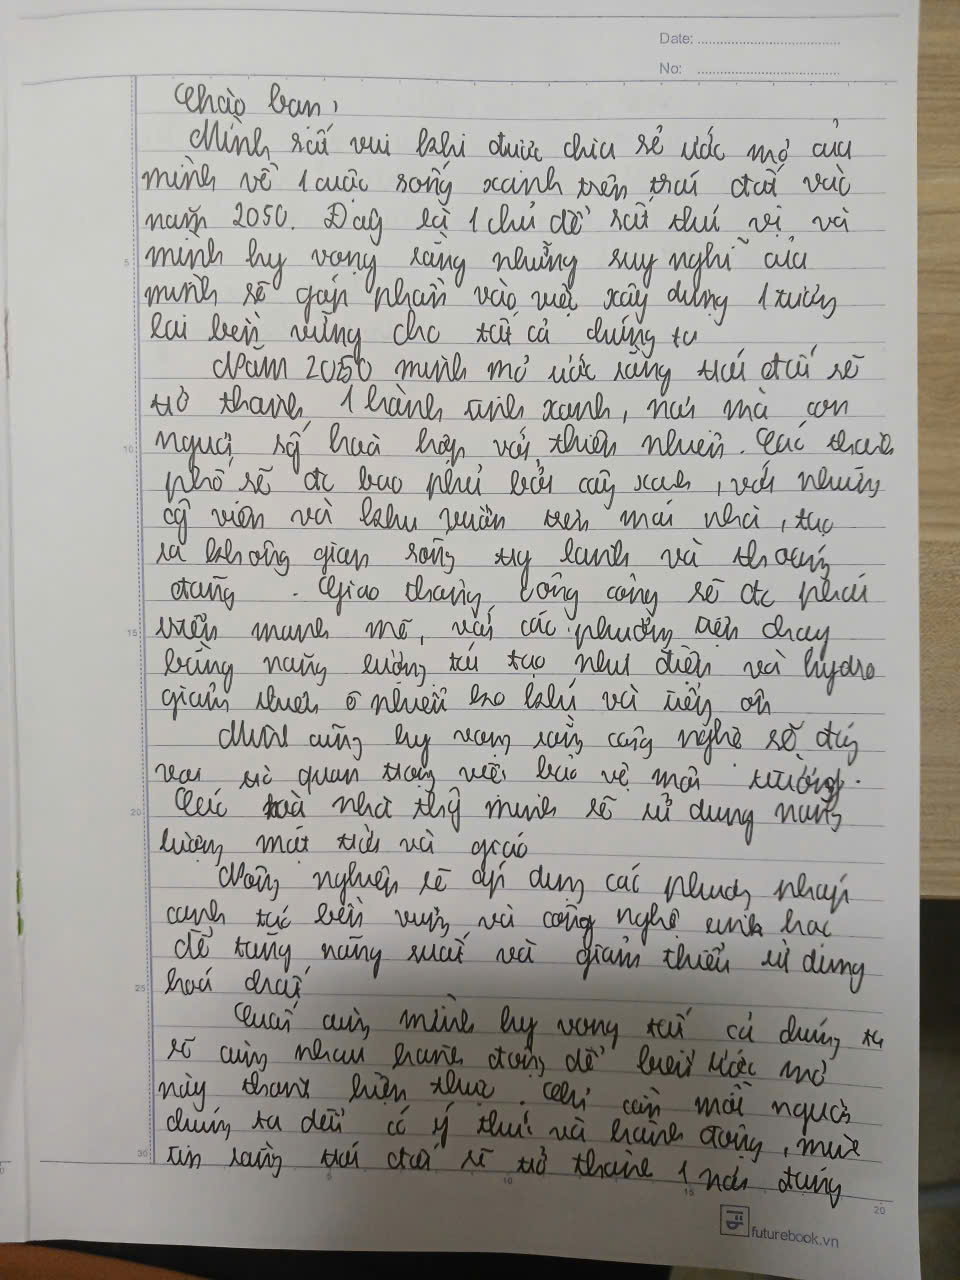 Date:
No:
Chào bạn,
Mình rất vui khi được chia sẻ ước mơ của
mình về 1 cuộc sống xanh trên trái đất vào
năm 2050. Đây là 1 chủ đề rất thú vị và
mình hy vọng rằng những suy nghĩ của
mình sẽ góp phần vào việc xây dựng 1 tương
lai bền vững cho tất cả chúng ta
Năm 2050 mình mơ ước rằng trái đất sẽ
trở thành 1 hành tinh xanh, nơi mà con
người sống hoà hợp với thiên nhiên. Các thành
phố sẽ đc bao phủ bởi cây xanh, với những
công viên và khu vườn trên mái nhà, tạo
ra không gian sống trong lành và thoáng
đãng. Giao thông công cộng sẽ đc phát
triển mạnh mẽ, với các phương tiện chạy
bằng năng lượng tái tạo như điện và hydro
giảm thiểu ô nhiễm ko khí và tiếng ồn
Mình cũng hy vọng rằng công nghệ sẽ đóng
vai trò quan trọng việc bảo vệ môi trường.
Các toà nhà thông minh sẽ sử dụng năng
lượng mặt trời và gió
Nông nghiệp sẽ áp dụng các phương pháp
canh tác bền vững và công nghệ sinh học
để tăng năng suất và giảm thiểu sử dụng
hoá chất
Cuối cùng mình hy vọng tất cả chúng ta
sẽ cùng nhau hành động để biến ước mơ
này thành hiện thực. Chỉ cần mỗi người
chúng ta đều có ý thức và hành động, mình
tin rằng trái đất sẽ trở thành 1 nơi đáng
5
10
15
20
25
30
5
10
15
20
futurebook.vn